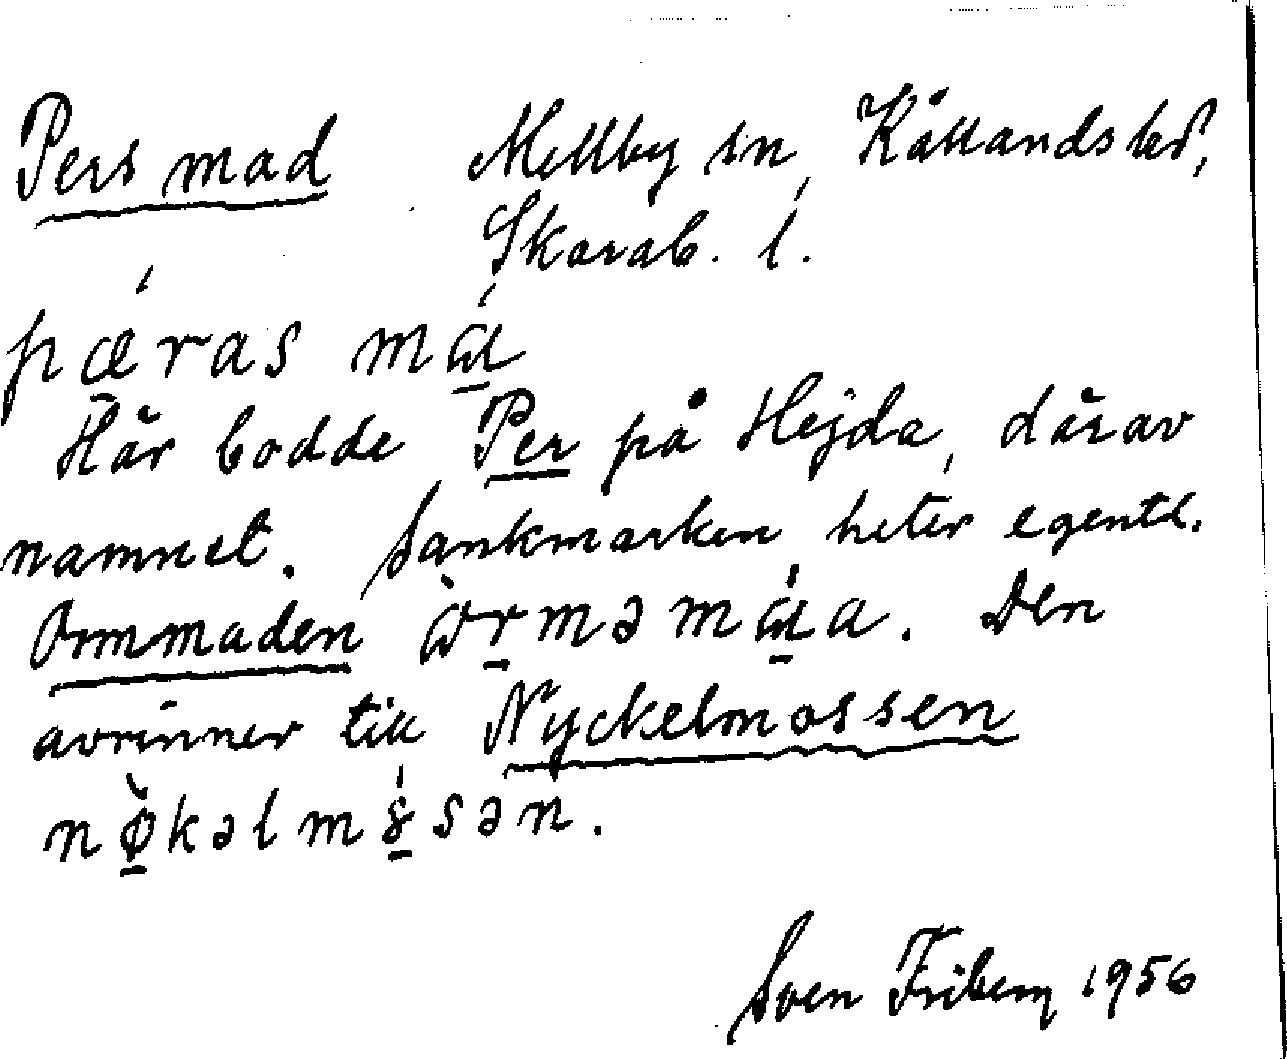 Pers mad Mellby sn, Kållands hd,
Skarab. l.
pæras mɑ
Här bodde Per på Hejda, därav
namnet. Sankmarken heter egentl.
Ormmaden ɷ̀rməmɑ́a. Den
avrinner till Nyckelmossen
nø̀kəlm8́sən.
Sven Friberg 1956